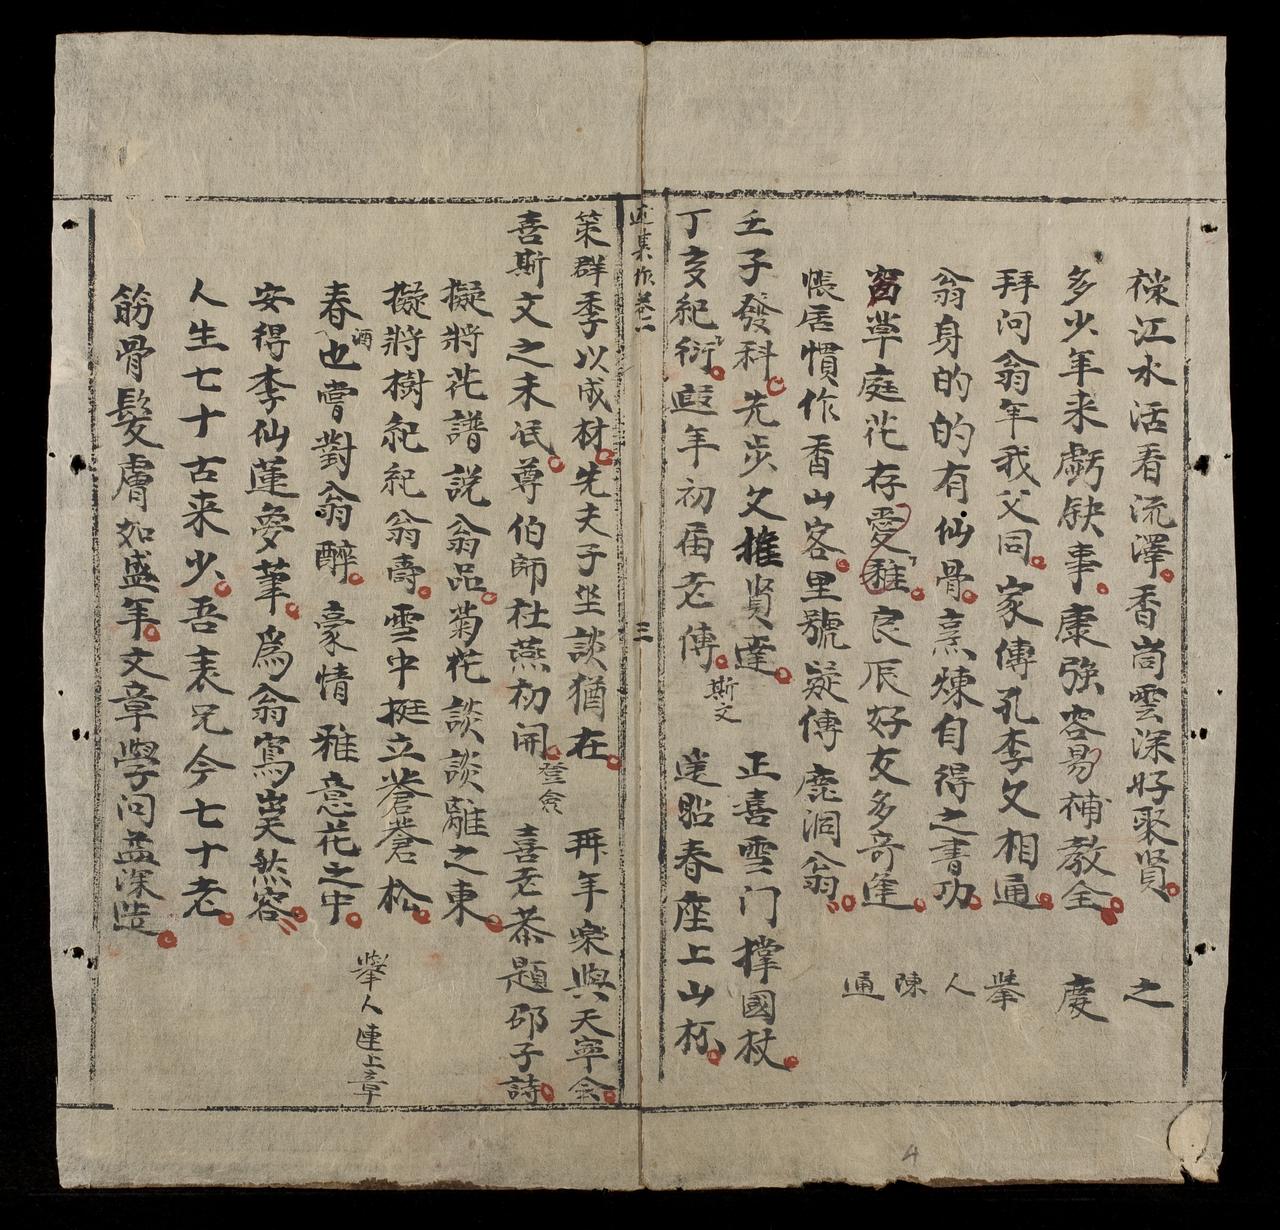 祿江水活看流澤香崗雲深好聚賢 之
多少年来虧缺事康強容易補教全 慶
拜问翁年我父同家傳孔李久相通 舉人陳通
翁身的的有仙骨熹煉自得之書功
窗草庭花存愛稚良辰好友多奇逢
帳居慣作香山客里號疑傳鹿洞翁
壬子發科先步久推賢達 正喜雲门撑國杖
丁亥紀衍遐年初届老傳 斯文 筵貽春座上山杯
近集作卷二 三
策群季以成材先夫子坐談猶在 再年樂與天寧会
喜斯文之未泯尊伯師社燕初開 登龛 喜老恭題邵子詩
擬將花譜説翁品菊花談談離之東
擬將樹紀紀翁壽雲中挺立蒼蒼松
春酒也嘗對翁醉豪情雅意花之中 舉人連上章
安得李仙蓮夢筆爲翁寫出天然容
人生七十古来少吾表兄今七十老
筋骨髮膚如盛年文章學问益深造